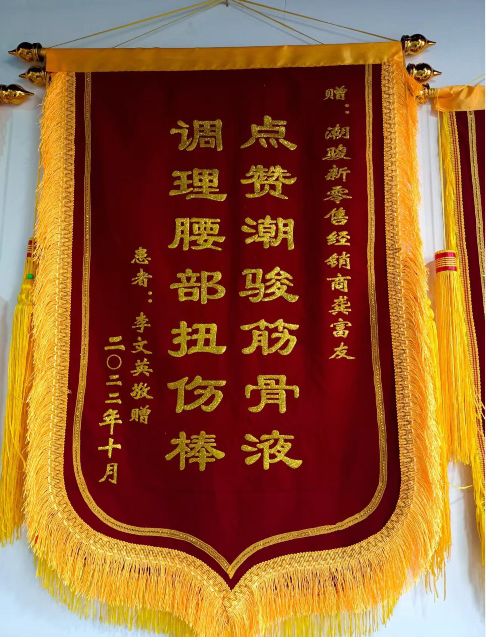 赠：潮骏新零售经销商龚富友
点赞潮骏筋骨液
调理腰部扭伤棒
患者：李文英敬赠
二〇二二年十月